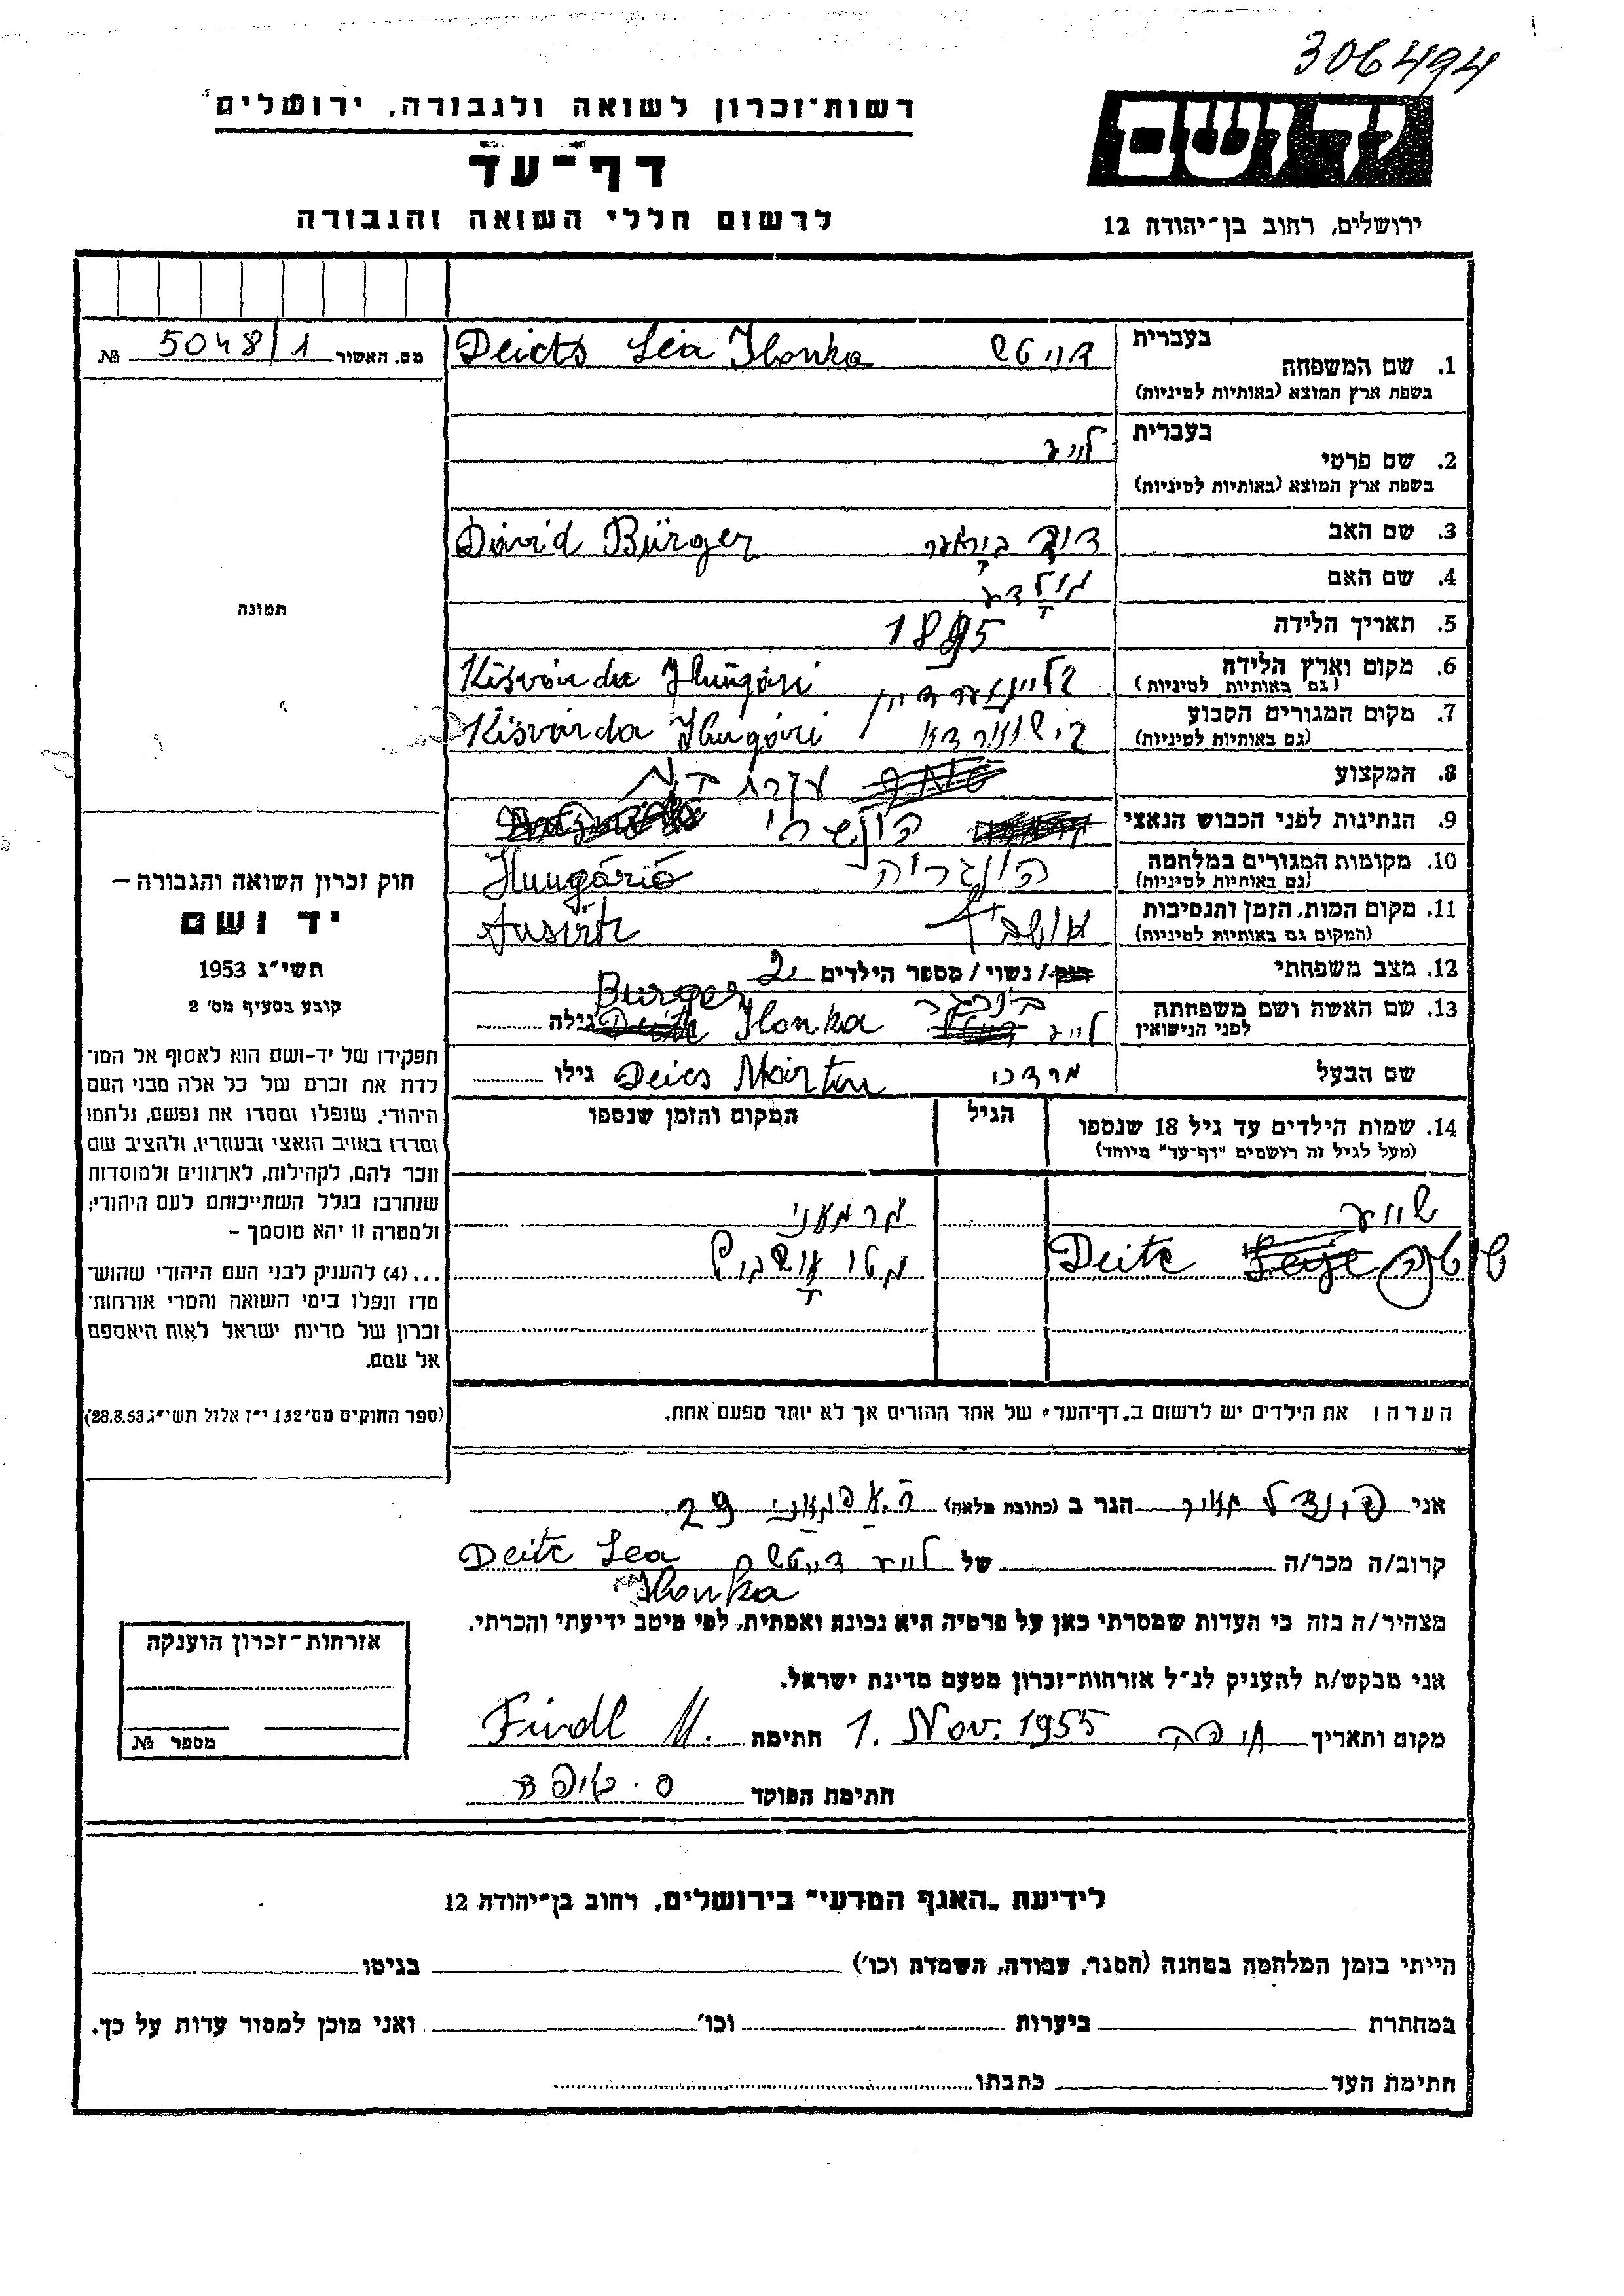 306494
רשות־זכרון לשואה ולגבורה, ירושלים
דף־עד
לרשום חללי השואה והגבורה
יד ושם
ירושלים, רחוב בן־יהודה 12
מס. האשור 5048/1 №
תמונה
חוק זכרון השואה והגבורה –
יד ושם
תשי"ג 1953
קובע בסעיף מס' 2
תפקידו של יד-ושם הוא לאסוף אל המו־
לדת את זכרם של כל אלה מבני העם
היהודי, שנפלו ומסרו את נפשם, נלחמו
ומרדו באויב הנאצי ובעוזריו, ולהציב שם
וזכר להם, לקהילות, לארגונים ולמוסדות
שנחרבו בגלל השתייכותם לעם היהודי;
ולמטרה זו יהא מוסמך –
...(4) להעניק לבני העם היהודי שהוש־
מדו ונפלו בימי השואה והמרי אזרחות־
זכרון של מדינת ישראל לאות היאספם
אל עמם.
(ספר החוקים מס' 132 י"ז אלול תשי"ג 28.8.53)
בעברית
1. שם המשפחה דייטש Deicts Lea Ilonka
בשפת ארץ המוצא (באותיות לטיניות)
בעברית
2. שם פרטי לייע
בשפת ארץ המוצא (באותיות לטיניות)
3. שם האב דוד בירגער Dávid Bürger
4. שם האם
5. תאריך הלידה 1895
6. מקום וארץ הלידה Kisvárda Hungári
(גם באותיות לטיניות)
7. מקום המגורים הקבוע קישווארדא Kisvárda Hungári
(גם באותיות לטיניות)
8. המקצוע עקרת בית
9. הנתינות לפני הכבוש הנאצי הונגרי
10. מקומות המגורים במלחמה הונגריה Hungárió
(גם באותיות לטיניות)
11. מקום המות, הזמן והנסיבות אושביץ Ausvitz
(המקום גם באותיות לטיניות)
12. מצב משפחתי רוק/נשוי/מספר הילדים 2
13. שם האשה ושם משפחתה לייע בורגר Burger Ilonka גילה
לפני הנישואין
שם הבעל מרדכי Deics Márton גילו
14. שמות הילדים עד גיל 18 שנספו הגיל המקום והזמן שנספו
(מעל לגיל זה רושמים "דף־עד" מיוחד)
Deitc
הערה: את הילדים יש לרשום ב„דף־העד" של אחד ההורים אך לא יותר מפעם אחת.
אני פינדל מאיר הגר ב (כתובת מלאה) 29
קרוב/ה מכר/ה של לייע דייטש Deitc Lea
Ilonka
מצהיר/ה בזה כי העדות שמסרתי כאן על פרטיה היא נכונה ואמתית, לפי מיטב ידיעתי והכרתי.
אני מבקש/ת להעניק לנ"ל אזרחות־זכרון מטעם מדינת ישראל.
מקום ותאריך חיפה 1. Nov. 1955 חתימה Findl M.
חתימת הפוקד
אזרחות־זכרון הוענקה
מספר №
לידיעת „האגף המדעי" בירושלים, רחוב בן־יהודה 12
הייתי בזמן המלחמה במחנה (הסגר, עבודה, השמדת וכו') בגיטו
במחתרת ביערות וכו' ואני מוכן למסור עדות על כך.
חתימת העד כתבתו